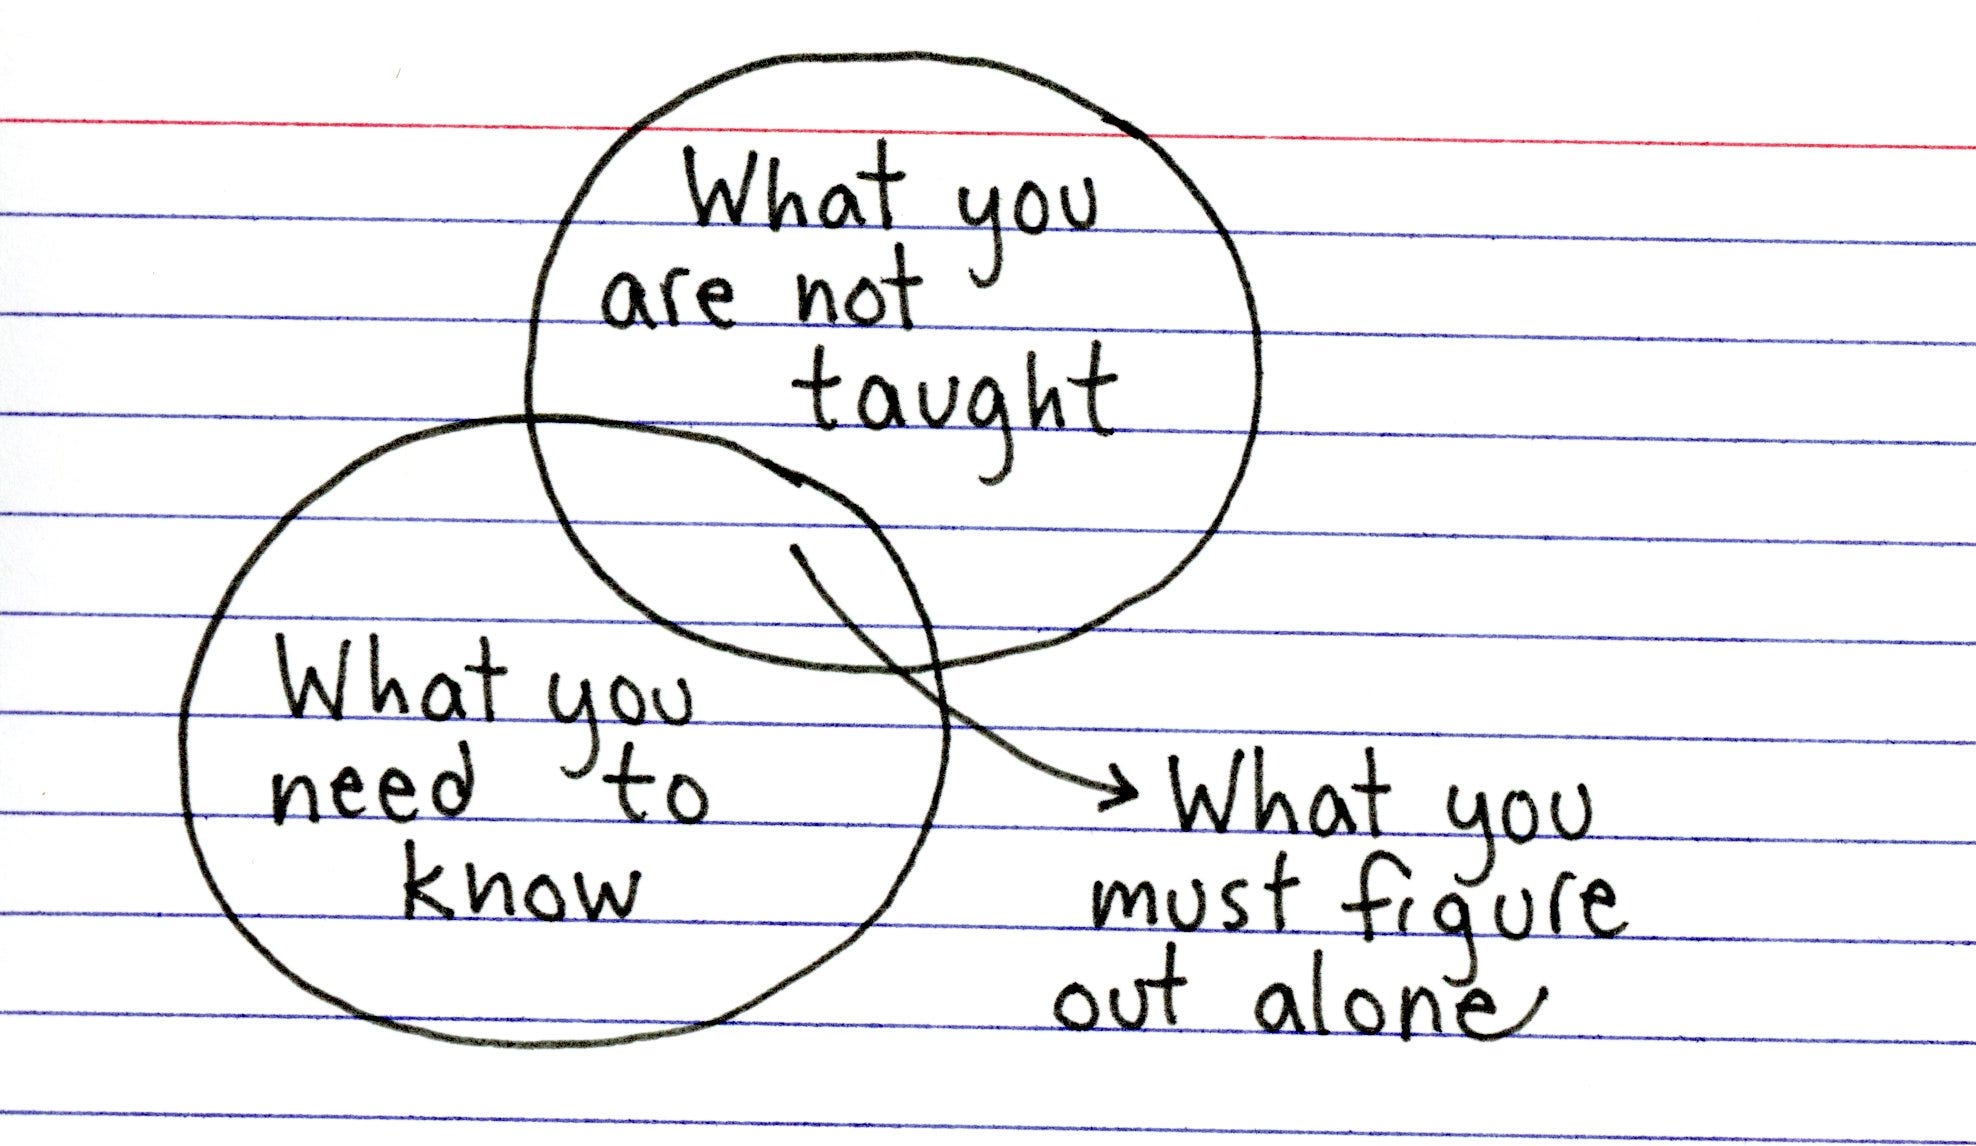 What you
are not
taught
What you
need to
know
What you
must figure
out alone